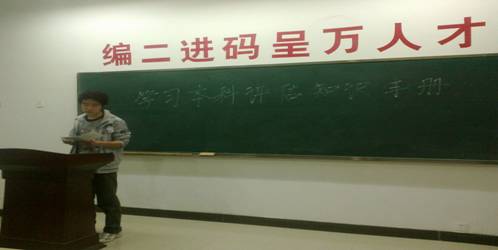 编二进码呈万人才
学习本科评估知识手册